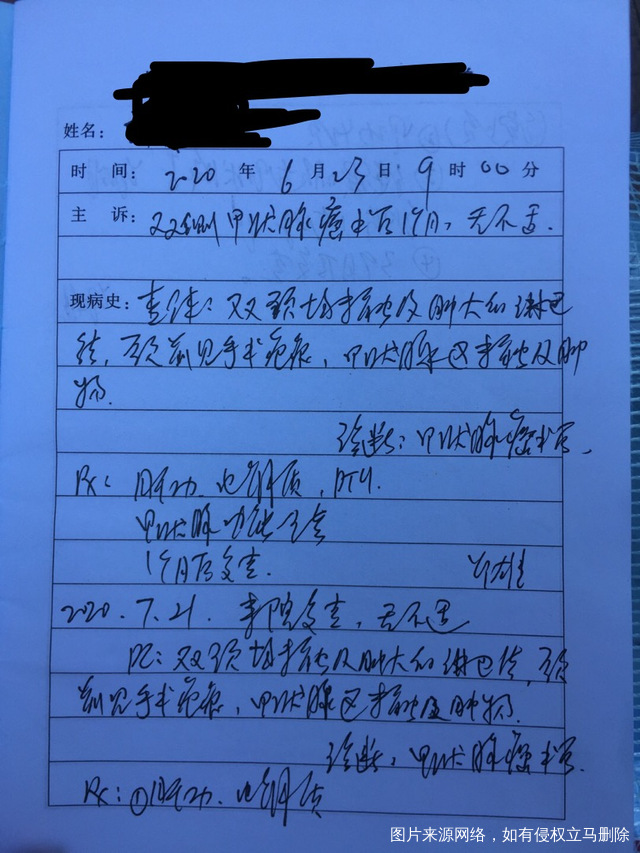 姓名:
时 间: 2020 年 6 月 23 日 9 时 00 分
主 诉: 双侧甲状腺癌术后1个月,无不适.
现病史: 查体: 双颈均未触及肿大的淋巴
结,颈前见手术疤痕,甲状腺区未触及肿
物.
诊断: 甲状腺癌术后.
Rx: 肝功. 电解质, PTH.
甲状腺功能
1个月后复查.
2020.7.21. 来院复查,无不适
PE: 双颈均未触及肿大的淋巴结,颈
前见手术疤痕,甲状腺区未触及肿物.
诊断: 甲状腺癌术后.
Rx: ①肝功. 电解质
图片来源网络,如有侵权立马删除